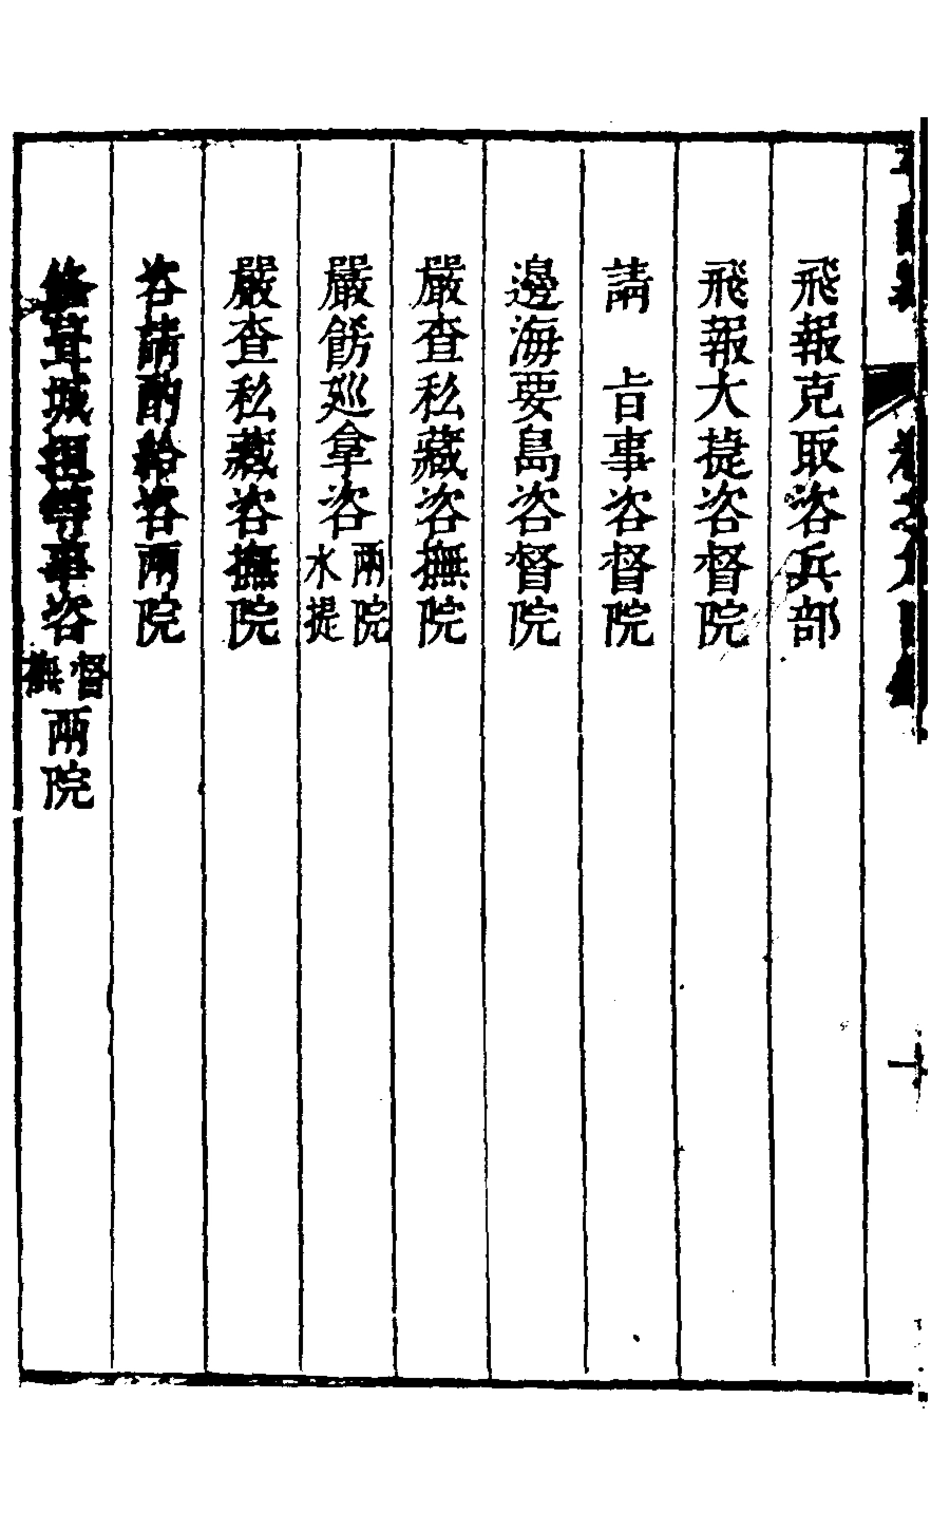 飛報克取咨兵部
飛報大㨗咨督院
請　㫖事咨督院
邊海要島咨督院
嚴查私藏咨撫院
嚴飭廵拿咨兩院水提
嚴查私藏咨撫院
咨請酌給咨兩院
修葺城垣等事咨督撫兩院